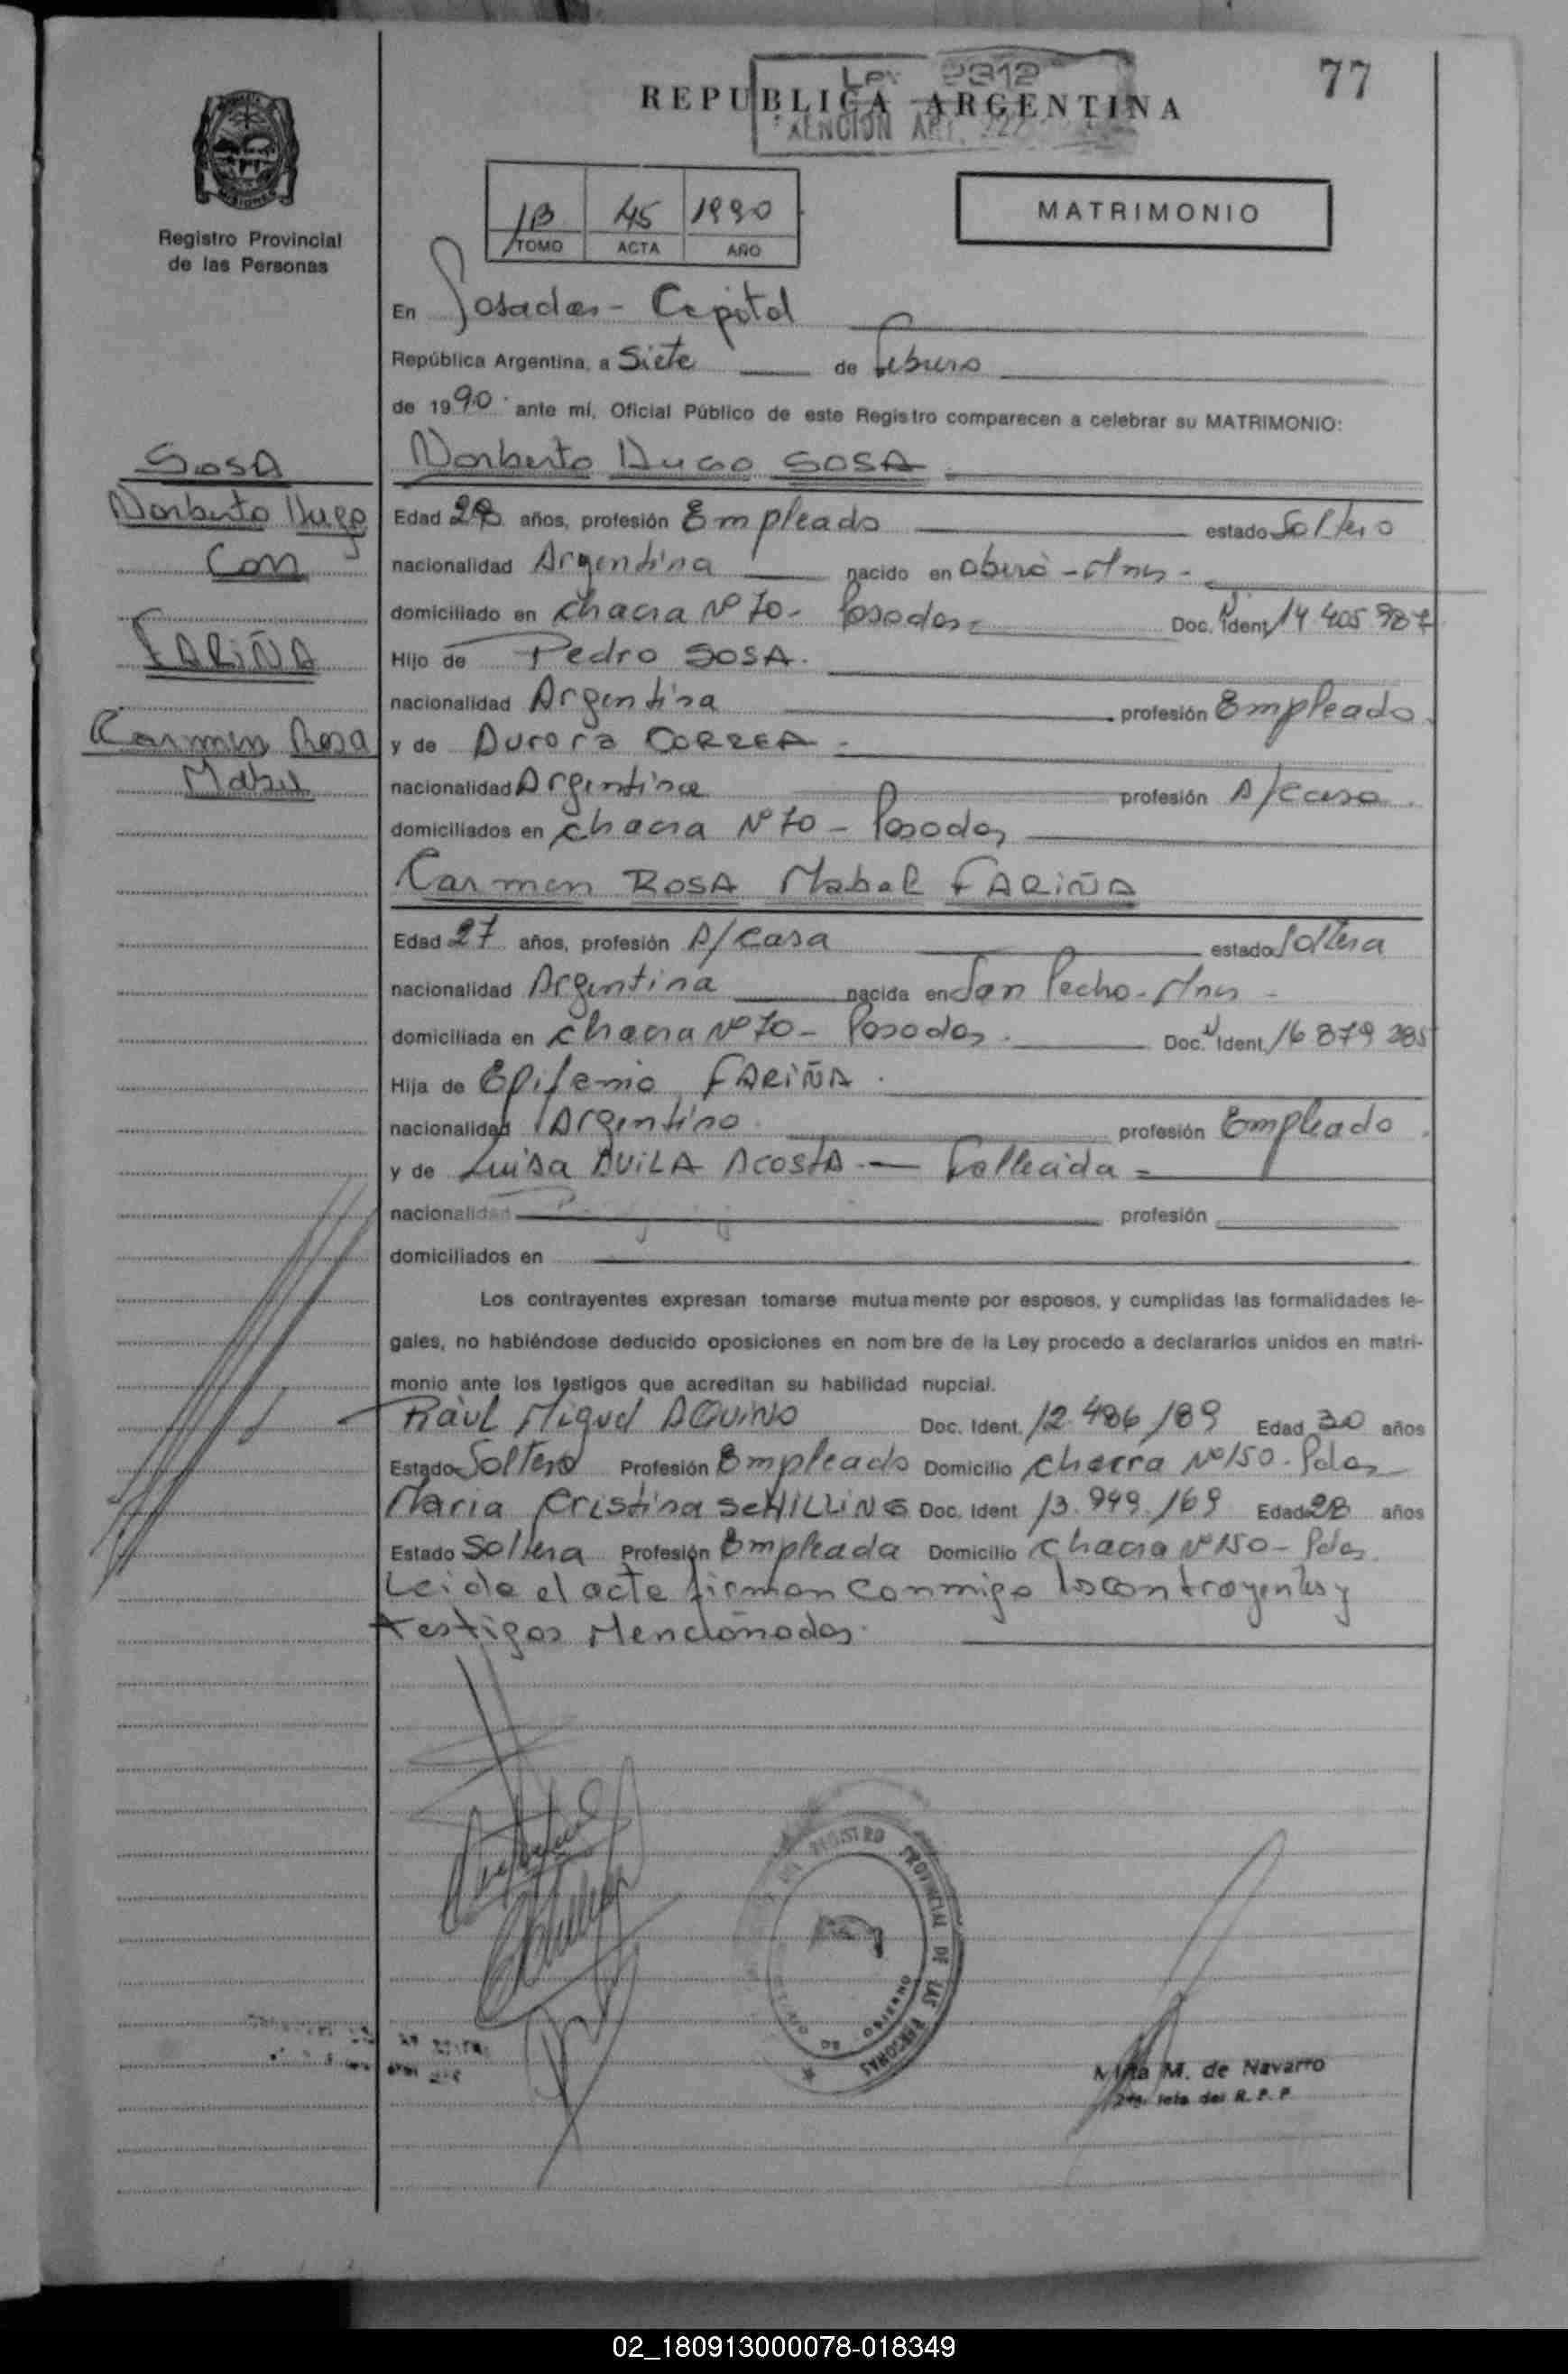 77
Ley 2312
REPUBLICA ARGENTINA
MISIONES
Registro Provincial
de las Personas
1B 45 1990
TOMO ACTA AÑO
MATRIMONIO
En Posadas - Capital
República Argentina, a Siete de febrero
de 1990 ante mí, Oficial Público de este Registro comparecen a celebrar su MATRIMONIO:
SOSA
Norberto Hugo
Con
FARIÑA
Carmen Rosa
Mabel
Norberto Hugo SOSA
Edad años, profesión Empleado estado Soltero
nacionalidad Argentina nacido en Oberá - Mnes -
domiciliado en chacra Nº 70 - Posadas Doc. Ident. 14 405 987
Hijo de Pedro SOSA.
nacionalidad Argentina profesión Empleado.
y de Aurora CORREA -
nacionalidad Argentina profesión A/casa.
domiciliados en chacra Nº 70 - Posadas
Carmen ROSA Mabel FARIÑA
Edad 27 años, profesión A/casa estado Soltera
nacionalidad Argentina nacida en San Pedro - Mnes -
domiciliada en chacra Nº 70 - Posadas. Doc. Ident. 16 879 285
Hija de Epifanio FARIÑA.
nacionalidad Argentino profesión Empleado.
y de Luisa AVILA ACOSTA - Fallecida -
nacionalidad profesión
domiciliados en
Los contrayentes expresan tomarse mutuamente por esposos, y cumplidas las formalidades le-
gales, no habiéndose deducido oposiciones en nombre de la Ley procedo a declararlos unidos en matri-
monio ante los testigos que acreditan su habilidad nupcial.
Raúl Miguel AQUINO Doc. Ident. 12.486/189 Edad 30 años
Estado Soltero Profesión Empleado Domicilio chacra Nº 150 - Pdas
Maria Cristina SCHILLING Doc. Ident 13.949.169 Edad 28 años
Estado Soltera Profesión Empleada Domicilio chacra Nº 150 - Pdas.
Leida el acta firman conmigo los contrayentes y
testigos Mencionados.
REGISTRO PROVINCIAL DE LAS PERSONAS
Mirta M. de Navarro
del R. P. P.
02_180913000078-018349